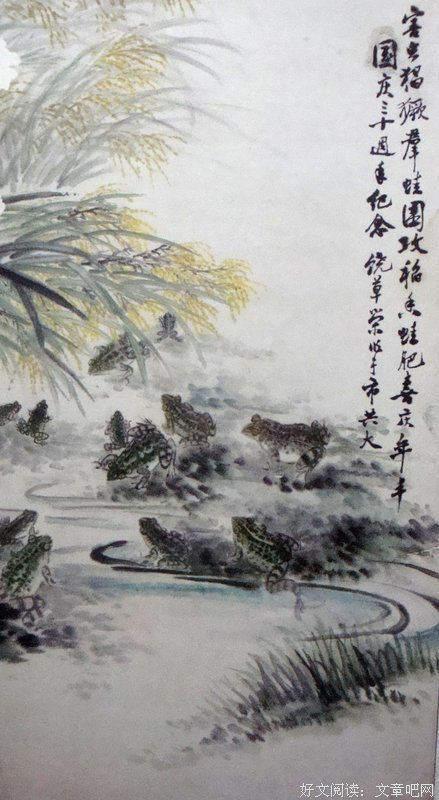 害虫猖獗羣蛙围攻稻香蛙肥喜庆年丰
国庆三十週年纪念饶草荣作于市共大
好文阅读：文章吧网